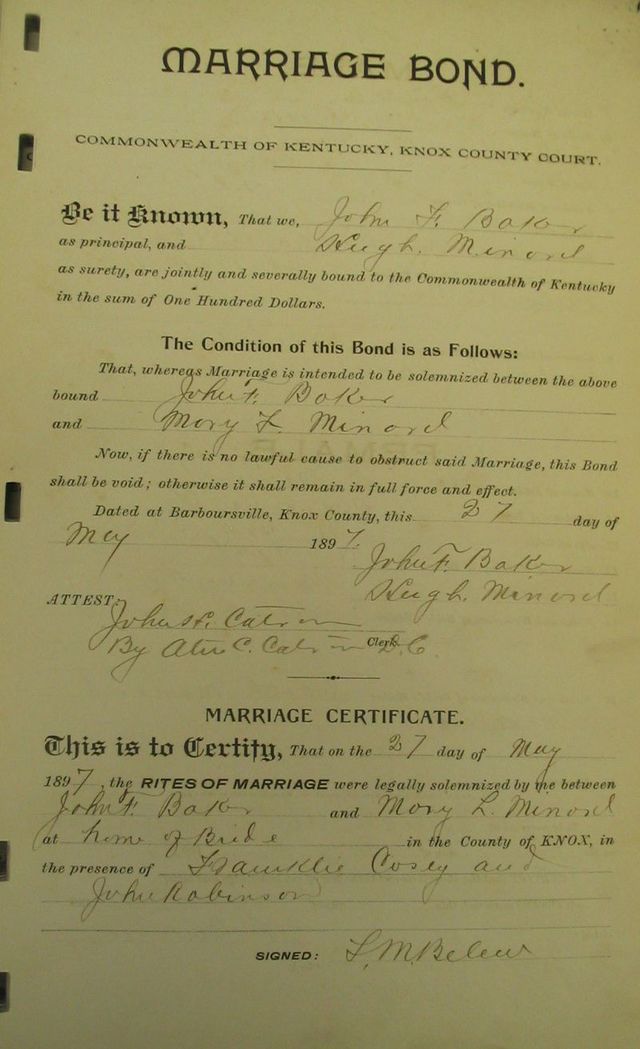 MARRIAGE BOND.
COMMONWEALTH OF KENTUCKY, KNOX COUNTY COURT.
Be it Known, That we, John F. Baker
as principal, and Hugh. Minord
as surety, are jointly and severally bound to the Commonwealth of Kentucky
in the sum of One Hundred Dollars.
The Condition of this Bond is as Follows:
That, whereas Marriage is intended to be solemnized between the above
bound John F. Baker
and Mary L. Minord
Now, if there is no lawful cause to obstruct said Marriage, this Bond
shall be void; otherwise it shall remain in full force and effect.
Dated at Barboursville, Knox County, this 27 day of
May 1897.
John F. Baker
Hugh. Minord
ATTEST:
John H. Catron
By C. Catron Clerk D.C.
MARRIAGE CERTIFICATE.
This is to Certify, That on the 27 day of May
1897, the RITES OF MARRIAGE were legally solemnized by me between
John F. Baker and Mary L. Minord
at home of Bride in the County of KNOX, in
the presence of Franklin Cosey and
John Robinson
SIGNED: L. M. Belew